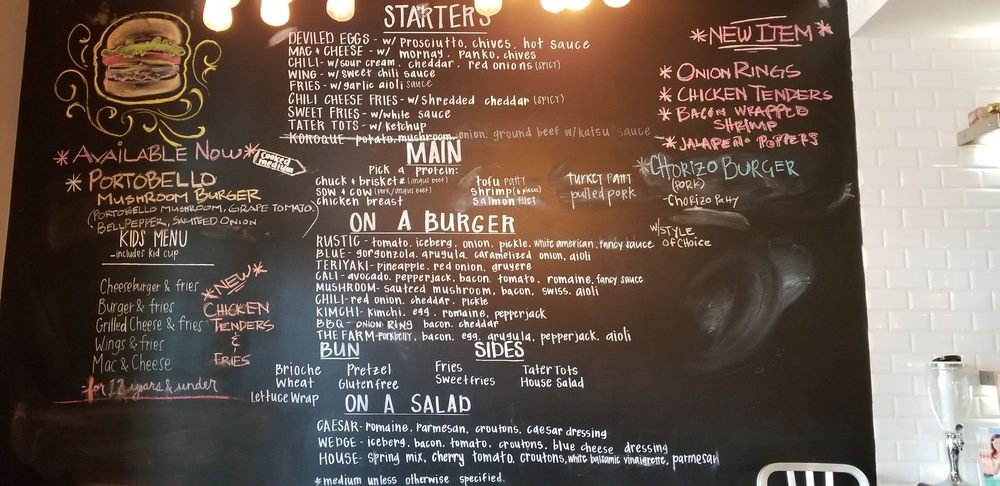 STARTERS
DEVILED EGGS - w/ Prosciutto, chives, hot sauce
MAC + CHEESE - w/ mornay. Panko, chives
CHILI - w/sour cream. cheddar. red onions (SPICY)
WING - w/sweet chili sauce
FRIES - w/garlic aioli sauce
CHILI CHEESE FRIES - w/shredded cheddar (SPICY)
SWEET FRIES - w/white sauce
TATER TOTS - w/ ketchup
KOROQUE - potato. mushroom. onion. ground beef w/katsu sauce
*NEW ITEM*
* ONION RINGS
* CHICKEN TENDERS
* BACON WRAPPED
SHRIMP
* JALAPEÑO POPPERS
*CHORIZO BURGER
(PORK)
- CHORIZO Patty
w/ STYLE
OF CHOICE
*AVAILABLE NOW*
Cooked
medium
* PORTOBELLO
MUSHROOM BURGER
(PORTOBELLO MUSHROOM, GRAPE TOMATO,
BELLPEPPER, SAUTEED ONION)
MAIN
Pick a protein:
chuck + brisket* (angus beef)
SOW + COW (pork/angus beef)
chicken breast
tofu patty
shrimp (6 pieces)
salmon filet
turkey patty
pulled pork
ON A BURGER
RUSTIC - tomato. iceberg. onion. pickle. white american. fancy sauce
BLUE - gorgonzola. arugula. caramelized onion, aioli
TERIYAKI - pineapple. red onion. gruyere
CALI - avocado. pepperjack, bacon. tomato. romaine. fancy sauce
MUSHROOM - sauteed mushroom, bacon. swiss. aioli
CHILI - red onion. cheddar. pickle
KIMCHI - kimchi. egg. romaine, pepperjack
BBQ - ONION RING bacon. cheddar
THE FARM - porkbelly, bacon. egg, arugula, pepperjack, aioli
KIDS MENU
- includes kid cup
Cheeseburger & fries
Burger & fries
Grilled Cheese & fries
Wings & fries
Mac & Cheese
*NEW*
CHICKEN
TENDERS
&
FRIES
for 12 years & under
BUN
Brioche Pretzel
Wheat Gluten free
Lettuce Wrap
SIDES
Fries Tater Tots
Sweet fries House Salad
ON A SALAD
CAESAR - romaine. parmesan, croutons. caesar dressing
WEDGE - iceberg, bacon. tomato. croutons. blue cheese dressing
HOUSE - spring mix, cherry tomato. croutons, white balsamic vinaigrette, parmesan
*medium unless otherwise specified.